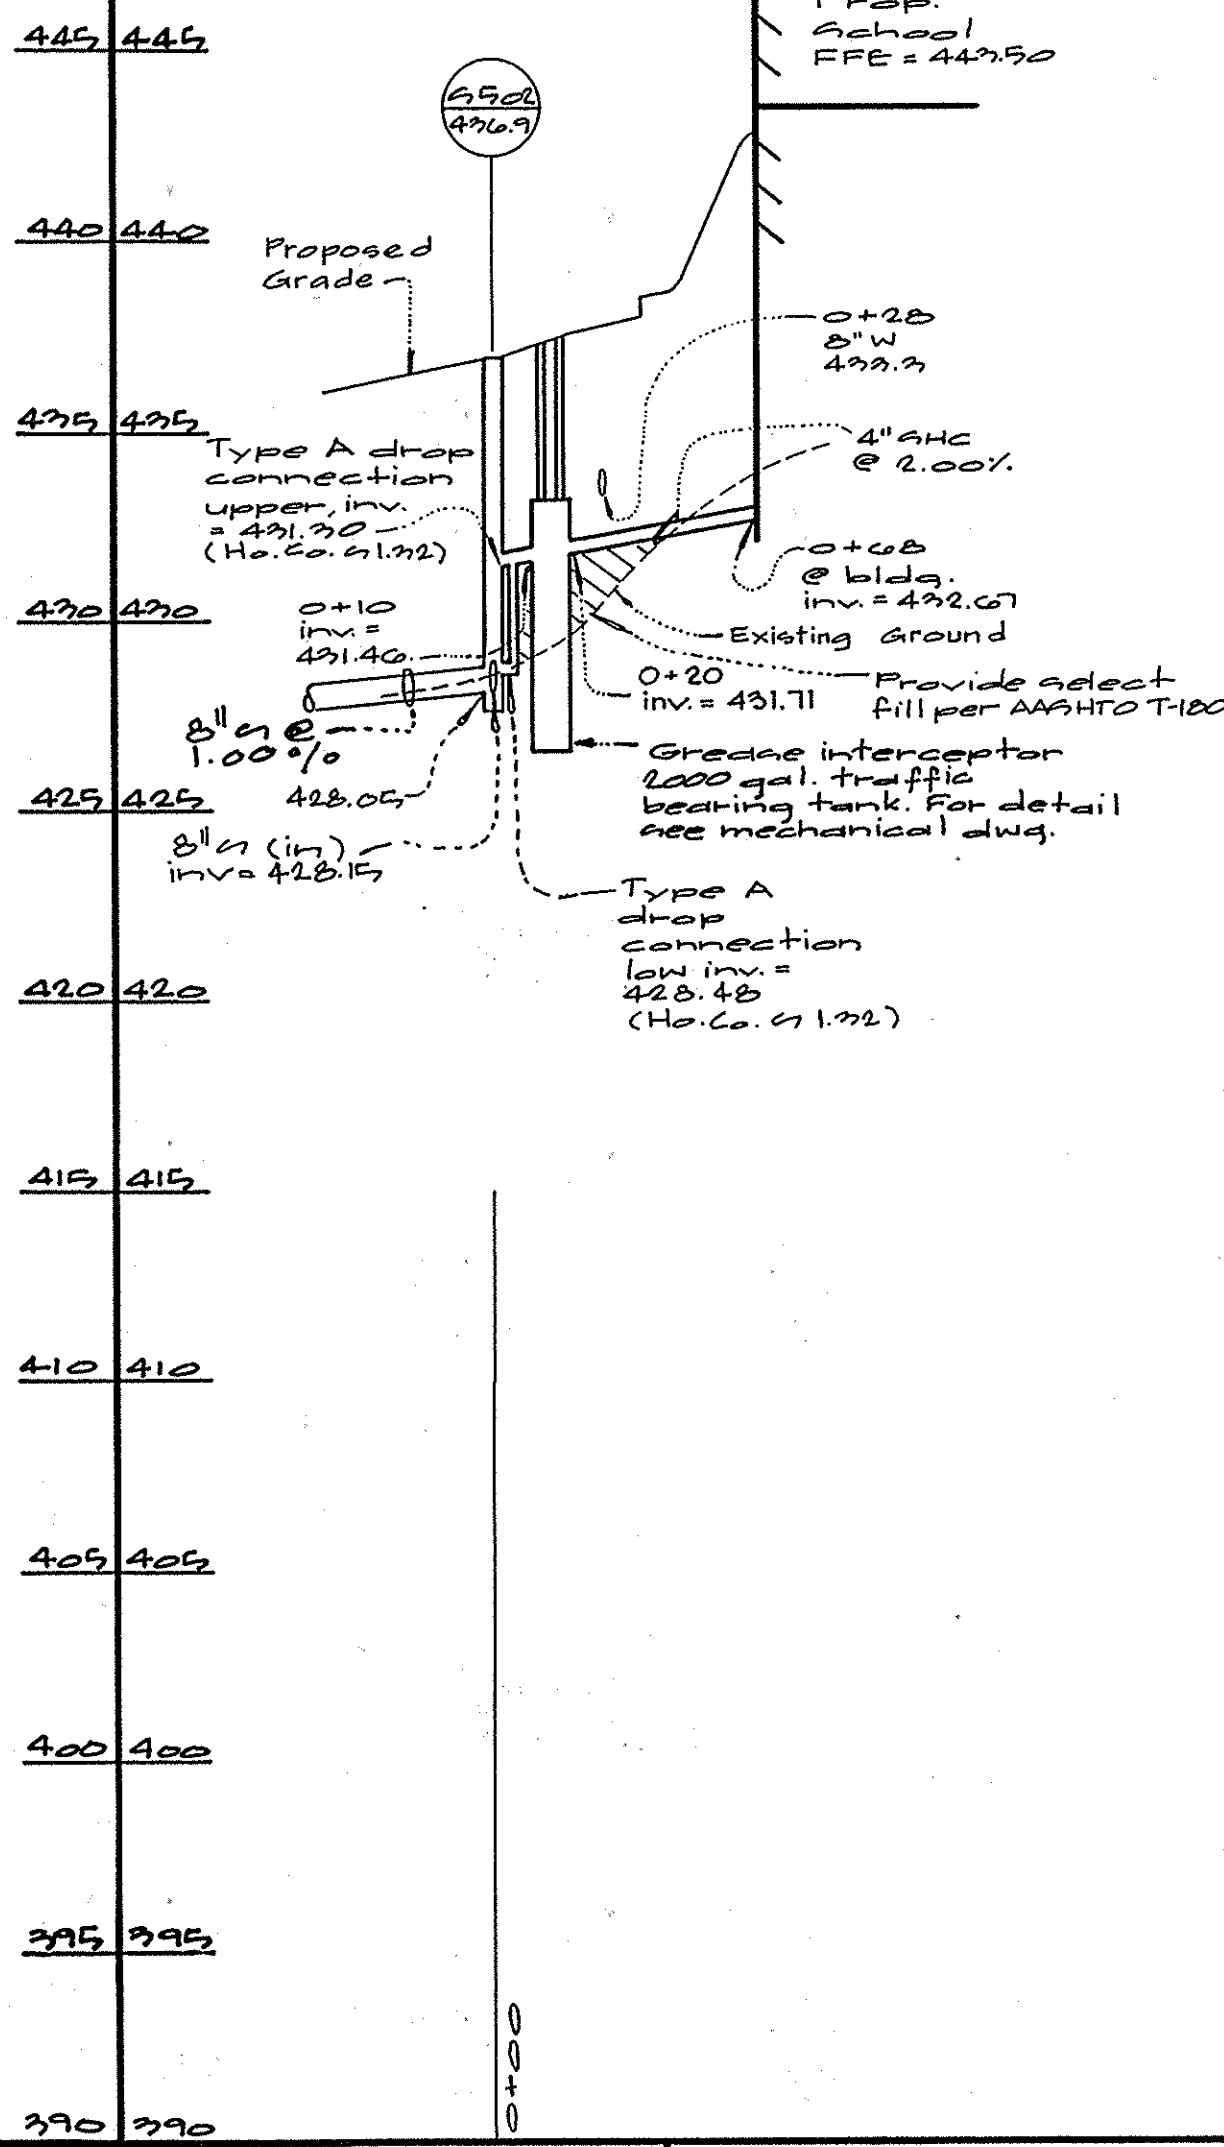 445 445
School
FFE = 443.50
S502
436.9
440 440
Proposed
Grade
0+28
8" W
433.3
435 435
Type A drop
connection
upper, inv.
= 431.30
(Ho.Co. S 1.32)
4" SHC
@ 2.00%
0+68
@ bldg.
inv. = 432.67
430 430
0+10
inv. =
431.46
Existing Ground
0+20
inv. = 431.71
Provide select
fill per AASHTO T-180
8" S @
1.00%
Grease interceptor
2000 gal. traffic
bearing tank. For detail
see mechanical dwg.
425 425
428.05
8" S (in)
inv = 428.15
Type A
drop
connection
low inv. =
428.48
(Ho.Co. S 1.32)
420 420
415 415
410 410
405 405
400 400
395 395
0+00
390 390